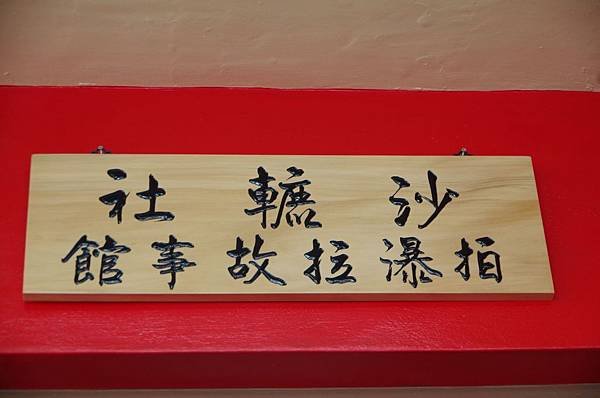 沙轆社
拍瀑拉故事館